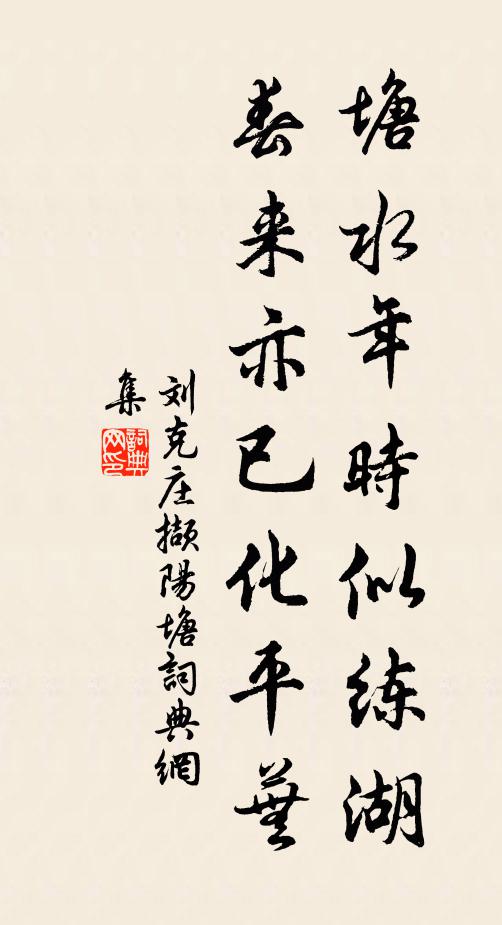 塘水年時似练湖
春来亦已化平蕪
刘克庄擷陽塘詞典網
集
詞典网印